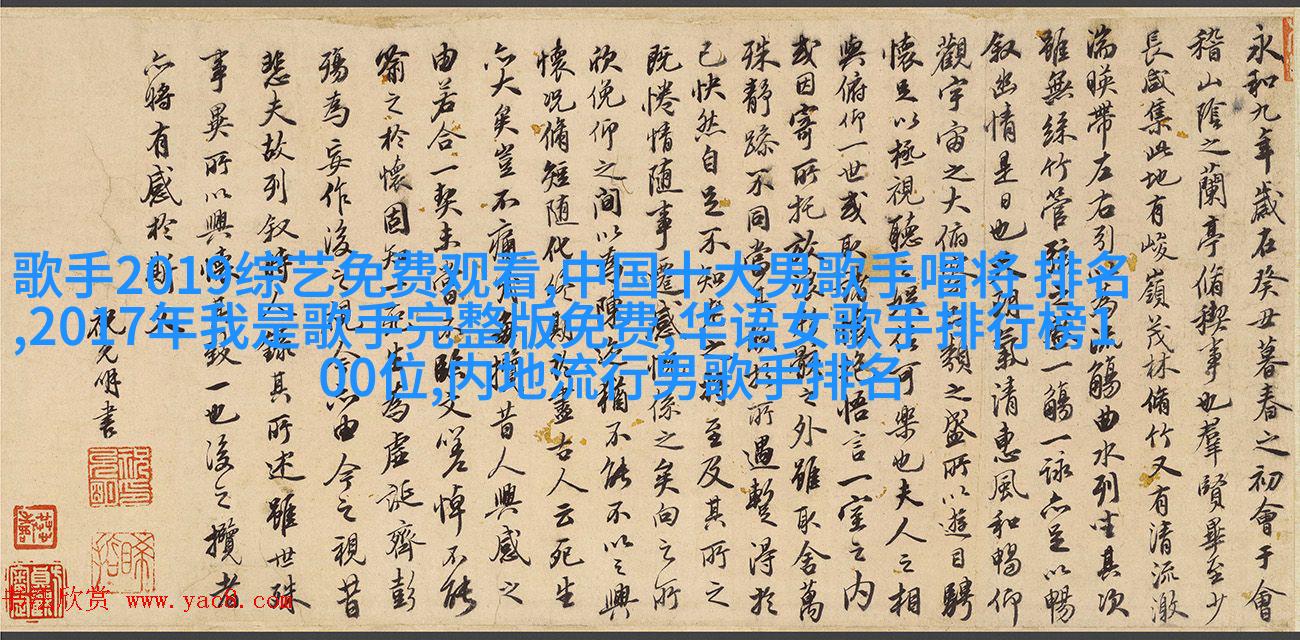 歌手2019综艺免费观看,中国十大男歌手唱将 排名
,2017年我是歌手完整版免费,华语女歌手排行榜1
00位,内地流行男歌手排名
永和九年歲在癸丑暮春之初會于會
稽山陰之蘭亭脩稧事也羣賢畢至少
長咸集此地有峻嶺茂林脩竹又有清流激
湍暎帶左右引以為流觴曲水列坐其次
雖無絲竹管弦之盛一觴一詠亦足以暢
叙幽情是日也天朗氣清惠風和暢仰
觀宇宙之大俯察品類之盛所以遊目騁
懷足以極視聽之娛信可樂也夫人之相
與俯仰一世或取諸懷抱悟言一室之內
或因寄所托放浪形骸之外雖取舍萬
殊静躁不同當其欣於所遇暫得於
己快然自足不知老之將至及其所之
既惓情随事遷感慨係之矣向之所
欣俛仰之間以為陳迹猶不能不以之興
懷况脩短随化終期於盡古人云死生
亦大矣豈不痛哉每攬昔人興感之
由若合一契未嘗不臨文嗟悼不能
喻之於懷固知一死生為虛誕齊彭
殤為妄作後之視今亦由今之視昔
悲夫故列叙時人録其所述雖世殊
事異所以興懷其致一也後之攬者
亦將有感於斯文
祝允明書
书法欣赏 www.yac8.com